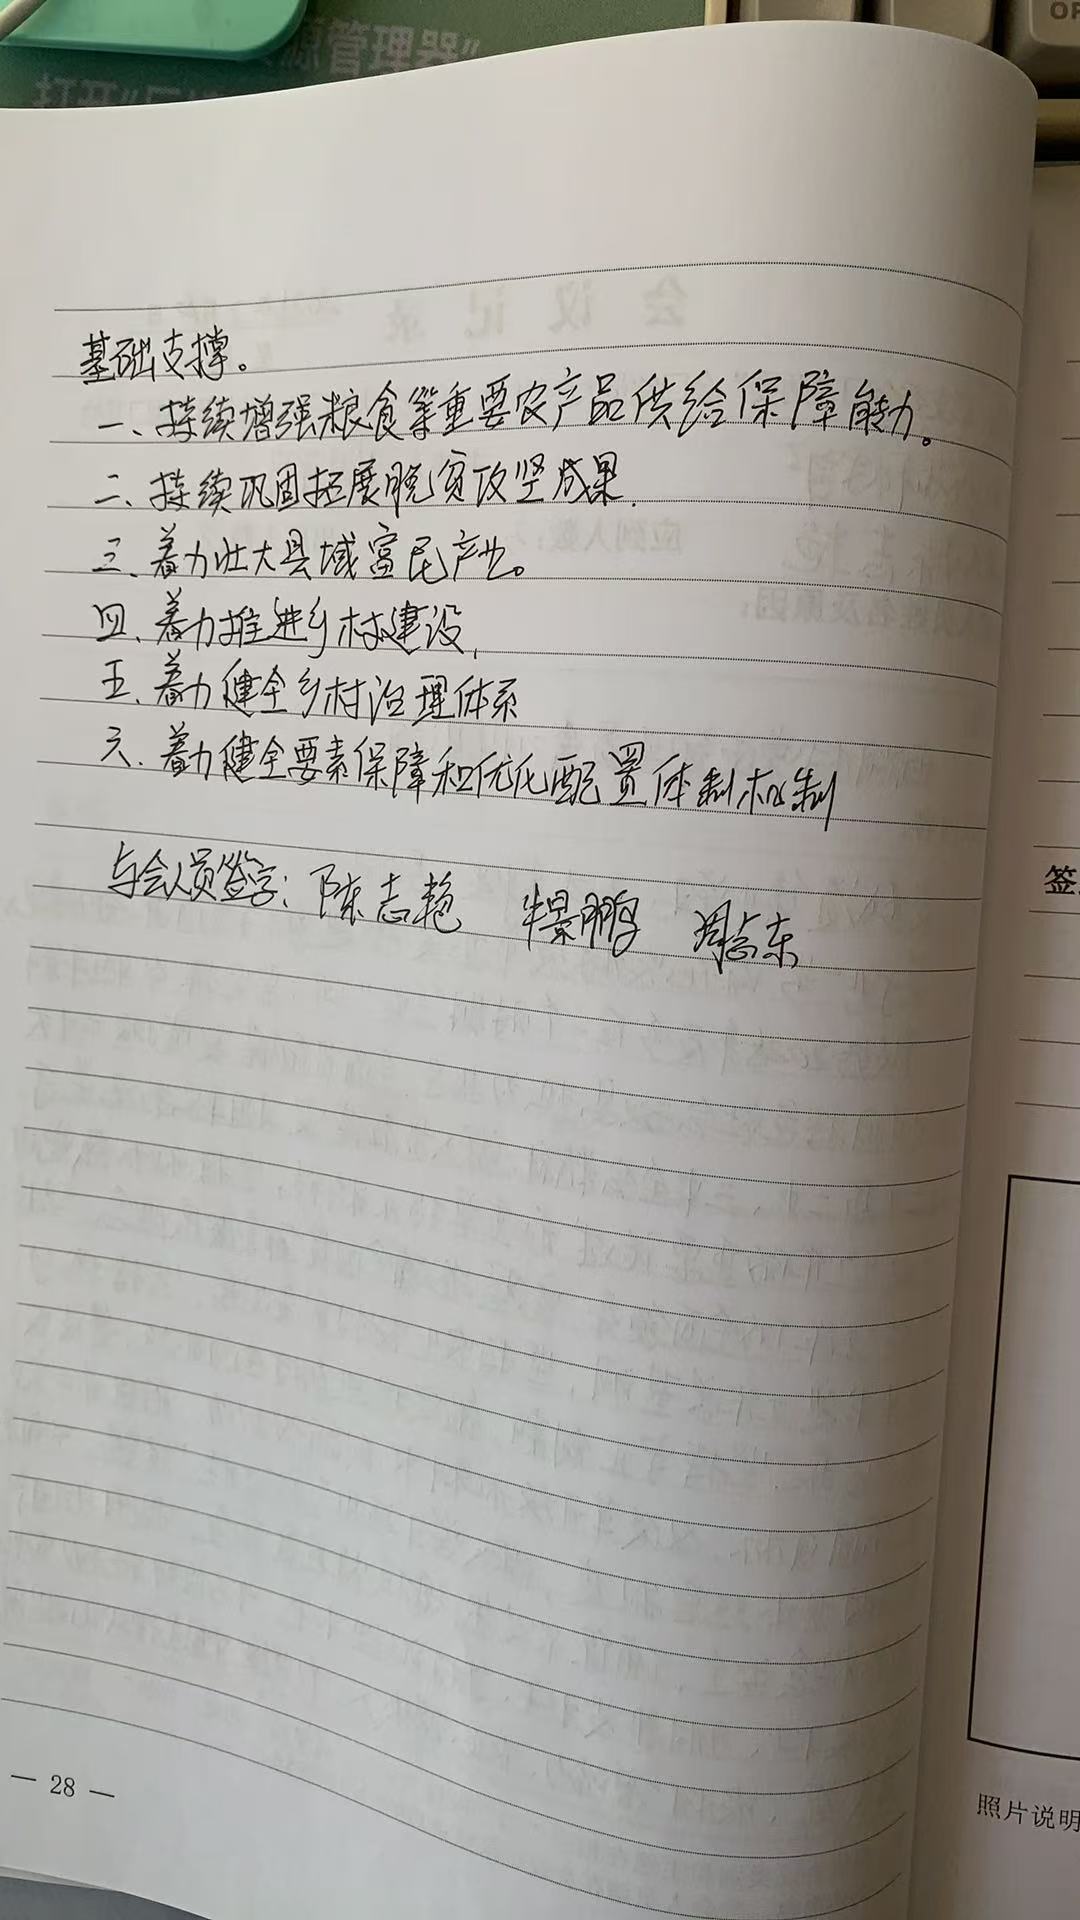 源管理器"
打开"
OF
基础支撑。
一、持续增强粮食等重要农产品供给保障能力。
二、持续巩固拓展脱贫攻坚成果.
三、着力壮大县域富民产业。
四、着力推进乡村建设,
五、着力健全乡村治理体系
六、着力健全要素保障和优化配置体制机制
与会人员签字：陈志艳 牛景鹏 周志东
签
照片说明
— 28 —